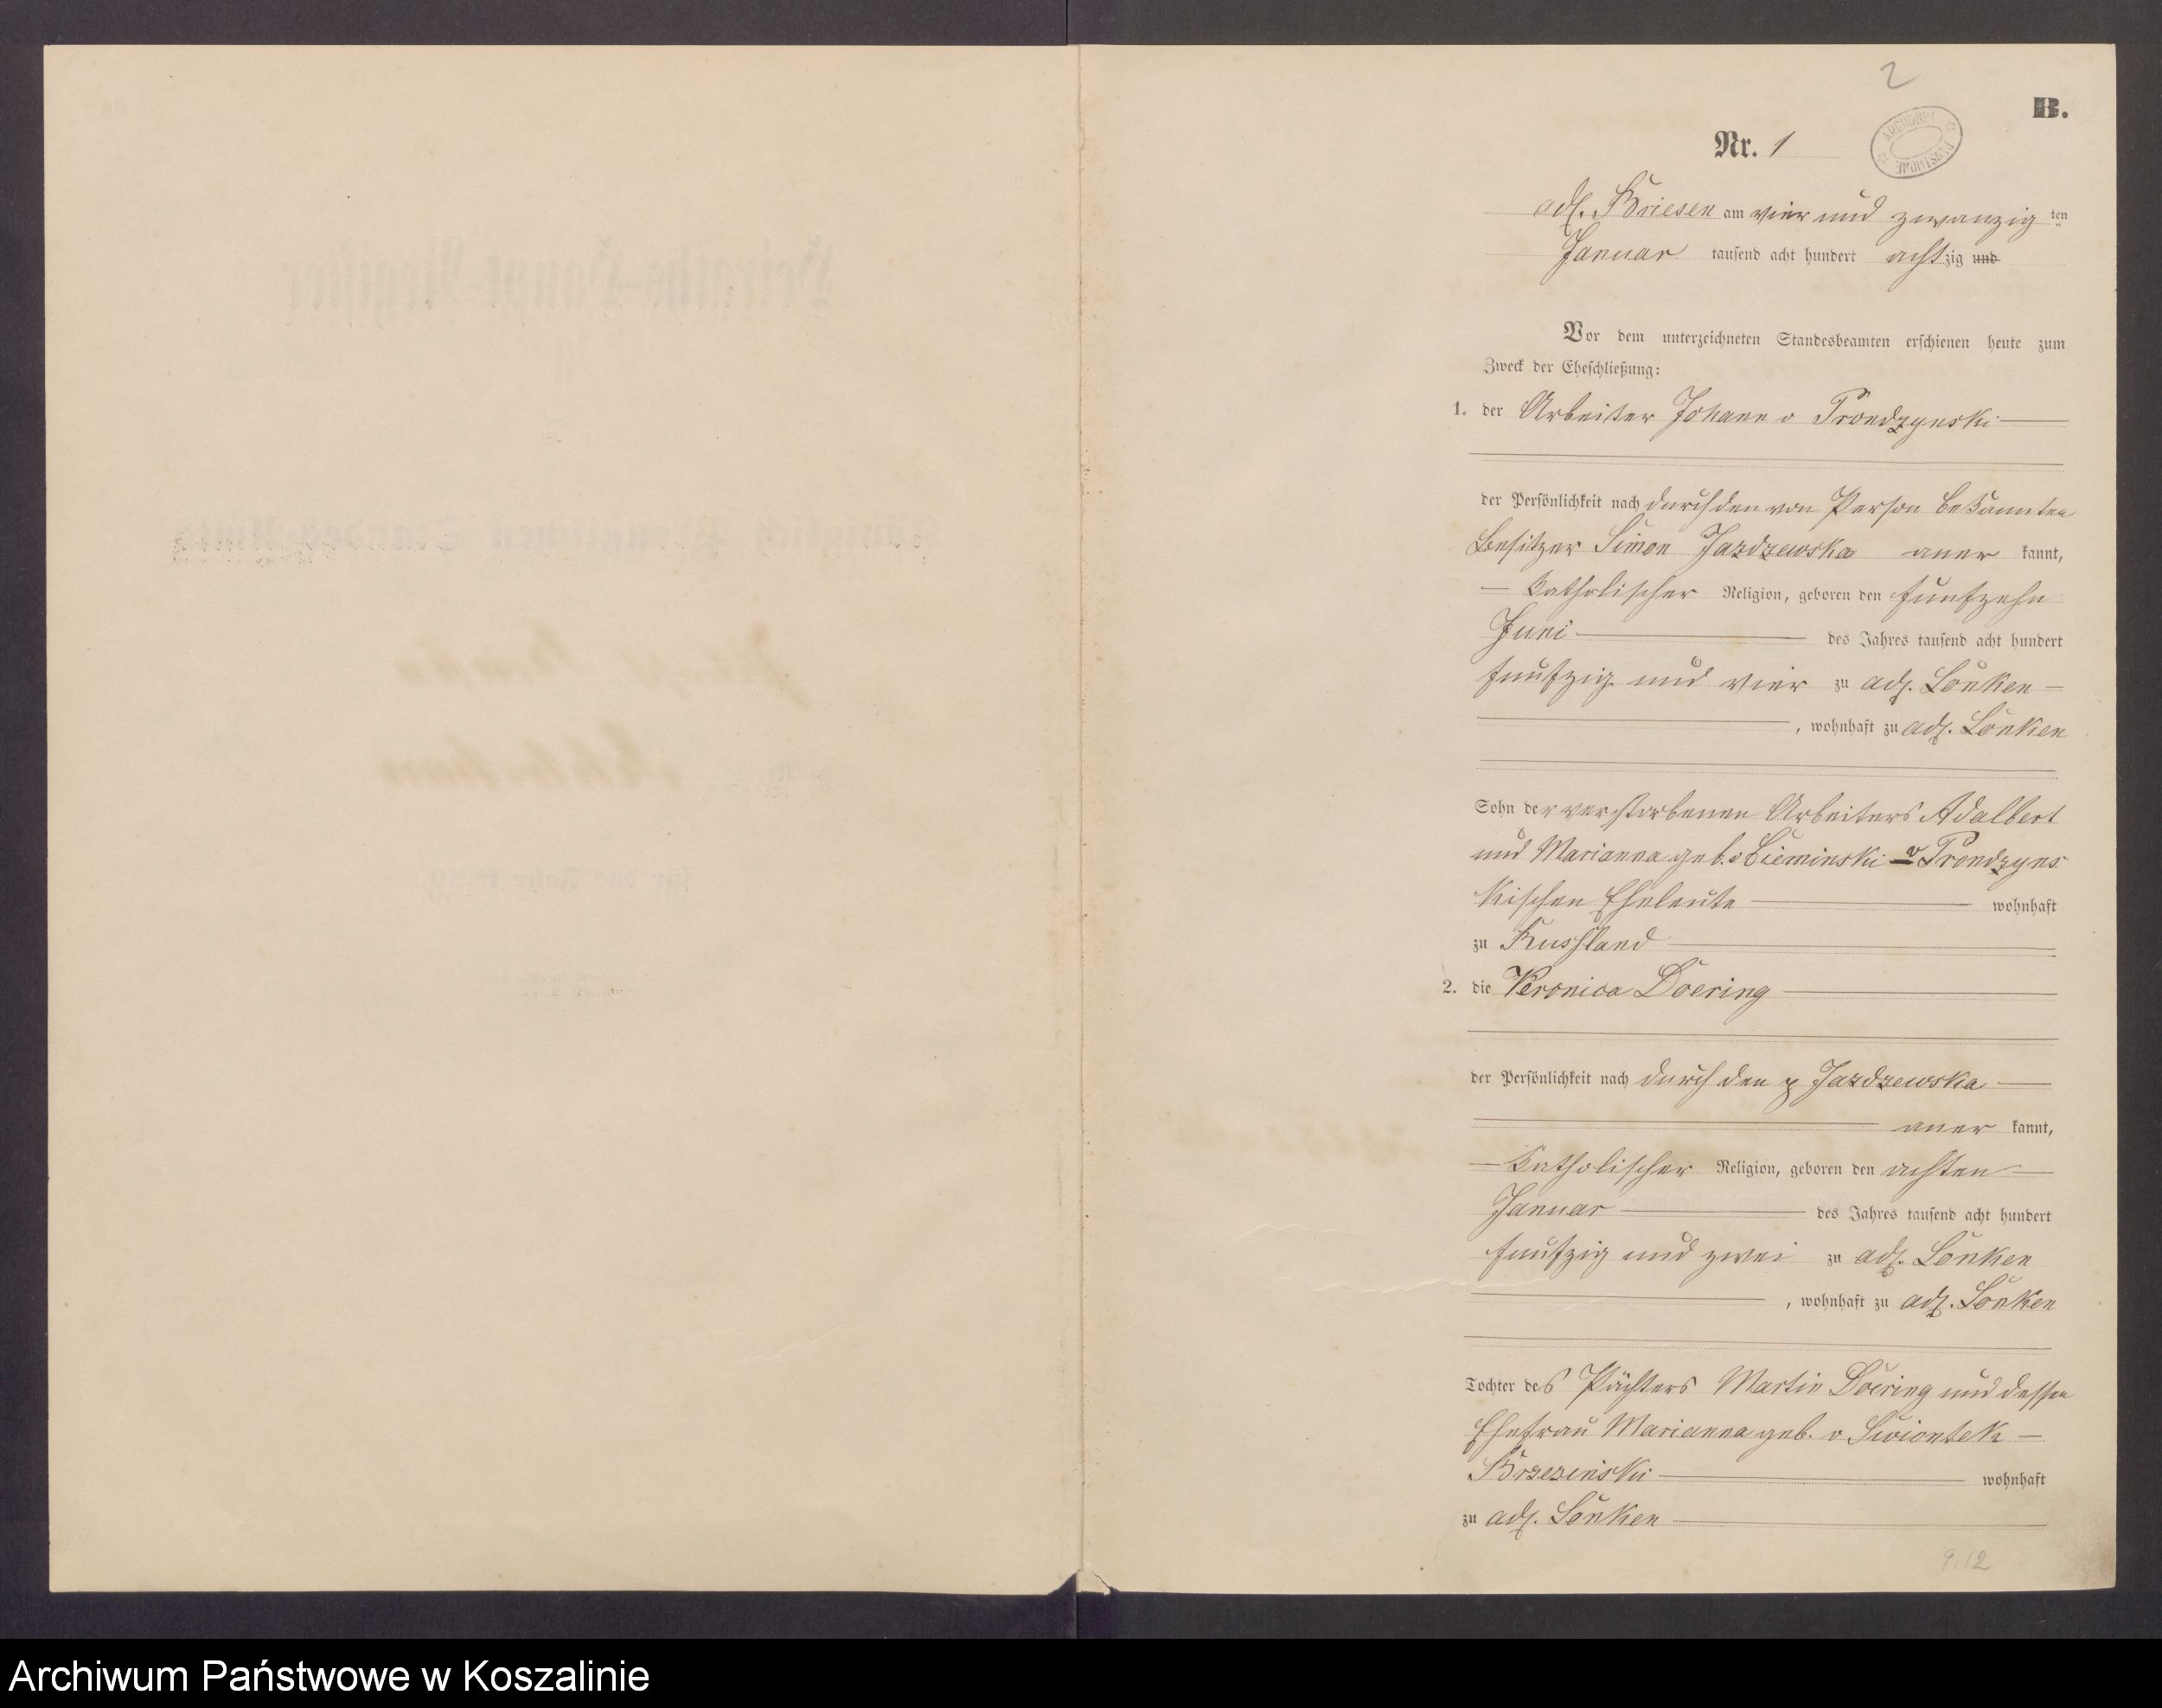 2
B.
Nr. 1
ARCHIWUM PAŃSTWOWE
adl. Briesen am vier und zwanzig ten
Januar tausend acht hundert achtzig und
Vor dem unterzeichneten Standesbeamten erschienen heute zum
Zweck der Eheschließung:
1. der Arbeiter Johann v Prondzynski
der Persönlichkeit nach durch den von Person bekannten
Besitzer Simon Jazdzewska aner kannt,
katholischer Religion, geboren den funfzehn
Juni des Jahres tausend acht hundert
funfzig und vier zu adl. Lonken
, wohnhaft zu adl. Lonken
Sohn der verstorbenen Arbeiters Adalbert
und Marianna geb. v Cieminski - v Prondzyns
kischen Eheleute wohnhaft
zu Russland
2. die Veronica Doering
der Persönlichkeit nach durch den p Jazdzewska
aner kannt,
katholischer Religion, geboren den achten
Januar des Jahres tausend acht hundert
funfzig und zwei zu adl. Lonken
, wohnhaft zu adl. Lonken
Tochter des Pächters Martin Doering und dessen
Ehefrau Marianna geb. v Swiontek -
Brzezinski wohnhaft
zu adl. Lonken
Archiwum Państwowe w Koszalinie